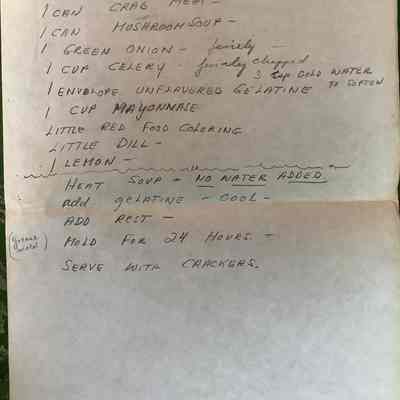 1 CAN CRAB MEAT -
1 CAN MUSHROOM SOUP -
1 GREEN ONION - finely -
1 CUP CELERY - finely chopped
1 ENVELOPE UNFLAVORED GELATINE 3 tsp COLD WATER TO SOFTEN
1 CUP MAYONNASE
LITTLE RED FOOD COLORING
LITTLE DILL -
1 LEMON -
HEAT SOUP - NO WATER ADDED
add gelatine - COOL -
ADD REST -
(grease mold) MOLD FOR 24 HOURS -
SERVE WITH CRACKERS.